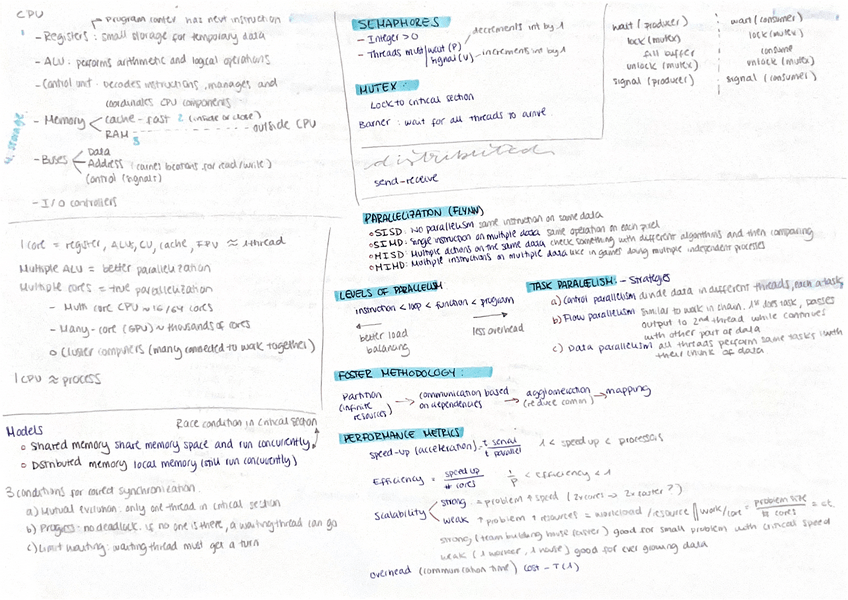 CPU
Program counter has next instruction
- Registers: small storage for temporary data
- ALU: performs arithmetic and logical operations
- Control unit: decodes instructions, manages and
coordinates CPU components
4. storage
- Memory cache - fast 2 (inside or close)
RAM 3 outside CPU
- Buses Data
Address (carries locations for read/write)
Control (signals)
- I/O controllers
1 core = register, ALUs, CU, cache, FPU ≈ 1 thread
Multiple ALU = better parallelization
Multiple cores = true parallelization
- Multi core CPU ~ 16/64 cores
- Many-core (GPU) ~ thousands of cores
o Cluster computers (many connected to work together)
1 CPU ≈ process
Race condition in critical section
Models
o Shared memory share memory space and run concurrently
o Distributed memory local memory (still run concurrently)
3 conditions for correct synchronization
a) Mutual exclusion: only one thread in critical section
b) Progress: no deadlock. if no one is there, a waiting thread can go
c) Limit waiting: waiting thread must get a turn
SEMAPHORES
- Integer > 0
decrements int by 1
- Threads must wait (P)
signal (V) increments int by 1
MUTEX
Lock to critical section
Barrier: wait for all threads to arrive
wait (producer)
lock (mutex)
fill buffer
unlock (mutex)
signal (producer)
wait (consumer)
lock (mutex)
consume
unlock (mutex)
signal (consumer)
distributed
send-receive
PARALLELIZATION (FLYNN)
o SISD: No parallelism same instruction on same data
o SIMD: Single instruction on multiple data same operation on each pixel
o MISD: Multiple actions on the same data check something with different algorithms and then comparing
o MIMD: Multiple instructions on multiple data like in games doing multiple independent processes
LEVELS OF PARALLELISM
instruction < loop < function < program
better load
balancing
less overhead
TASK PARALELISM - Strategies
a) Control parallelism divide data in different threads, each a task
b) Flow parallelism similar to work in chain, 1st does task, passes
output to 2nd thread while continues
with other part of data
c) Data parallelism all threads perform same tasks with
their chunk of data
FOSTER METHODOLOGY:
Partition
(infinite
resources)
communication based
on dependencies
agglomeration
(reduce comm)
mapping
PERFORMANCE METRICS
speed-up (acceleration) = t serial / t parallel 1 < speed up < processors
Efficiency = speed up / # cores 1/p < efficiency < 1
Scalability strong = problem ↑ speed (2x cores → 2x faster?)
weak ↑ problem ↑ resources = workload/resource || work/core = problem size / # cores = ct.
strong (team building house faster) good for small problem with critical speed
weak (1 worker, 1 house) good for ever growing data
overhead (communication time) cost - T(1)